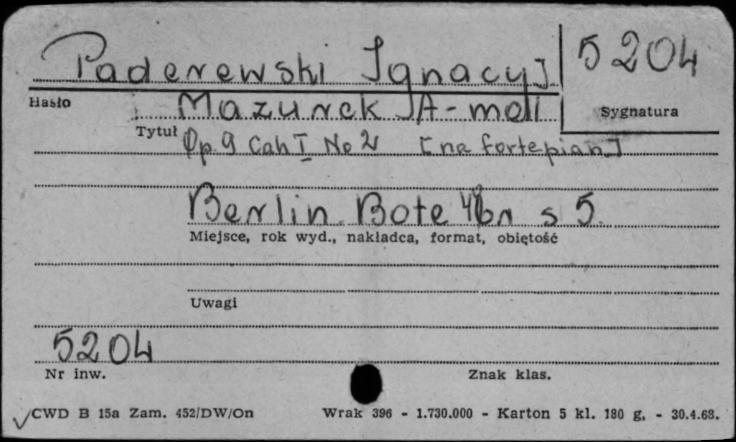 Paderewski Ignacy J
5204
Hasło
Mazurek A-moll
Sygnatura
Tytuł
Op. 9 Cah I No 2 [na fortepian]
Berlin Bote s 5
Miejsce, rok wyd., nakładca, format, objętość
Uwagi
5204
Nr inw.
Znak klas.
CWD B 15a Zam. 452/DW/On
Wrak 396 - 1.730.000 - Karton 5 kl. 180 g, - 30.4.68.